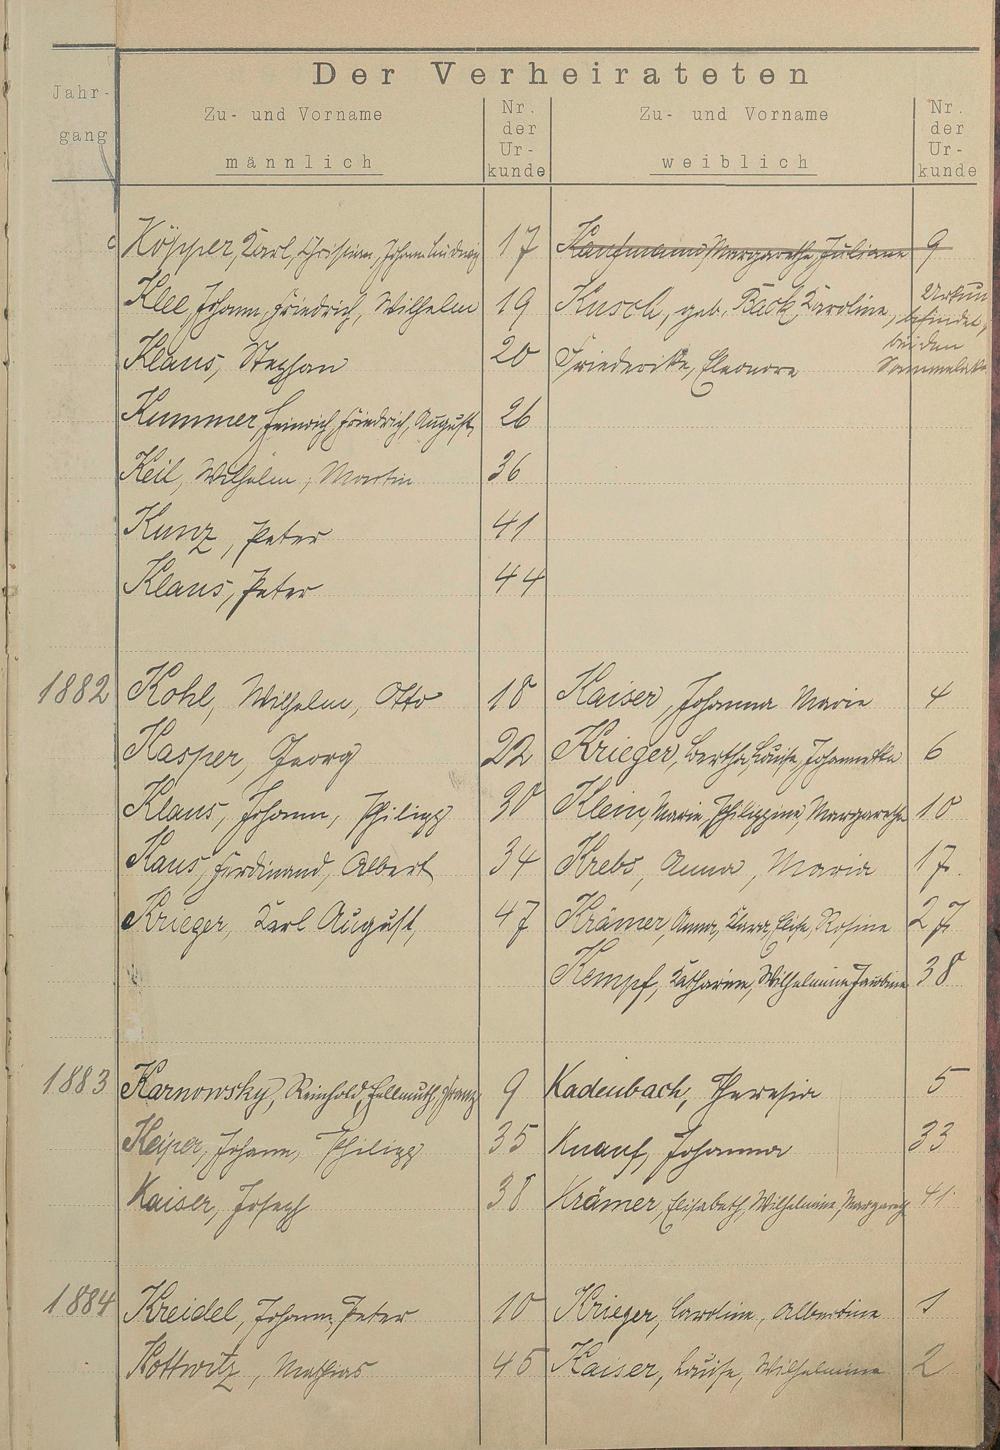 Der Verheirateten
Jahr-
gang
Zu- und Vorname
männlich
Nr.
der
Ur-
kunde
Zu- und Vorname
weiblich
Nr.
der
Ur-
kunde
Köpper, Karl, Christian, Johann Ludwig 17 Kaufmann, Margarethe, Juliane 9
Klee, Johann, Friedrich, Wilhelm 19 Kusch, geb. Back, Karoline,
befindet,
bei den
Klaus, Stephan 20 Friederike, Eleonore
Kummer, Heinrich, Friedrich, August, 26
Keil, Wilhelm, Martin 36
Kunz, Peter 41
Klaus, Peter 44
1882 Kohl, Wilhelm, Otto 18 Kaiser, Johanna Marie 4
Kasper, Georg 22 Krieger, Bertha, Louise, Johannetta 6
Klaus, Johann, Philipp 30 Klein, Marie, Philippine, Margarethe 10
Kaus, Ferdinand, Albert 34 Krebs, Anna, Maria 17.
Krieger, Karl August, 47 Krämer, Anna, Klara, Elise, Rosine 27
Kempf, Katharine, Wilhelmine, 38
1883 Karnowsky, Reinhold, Hellmuth, Franz 9 Kadenbach, Theresia 5
Keiper, Johann, Philipp 35 Knauf, Johanna 33
Kaiser, Joseph 38 Krämer, Elisabeth, Wilhelmine, Margareth 41
1884 Kreidel, Johann, Peter 10 Krieger, Caroline, Albertine 1
Kottwitz, Mathias 45 Kaiser, Louise, Wilhelmine 2